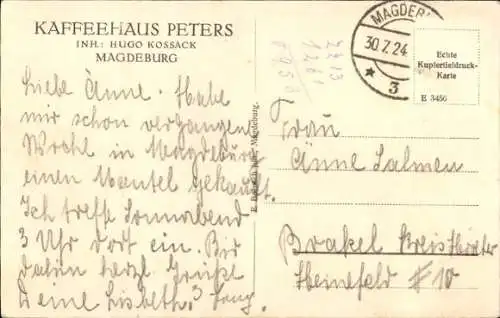 KAFFEEHAUS PETERS
INH: HUGO KOSSACK
MAGDEBURG
Liebe Änne. Habe
mir schon vergangene
Woche in Magdeburg
einen Mantel gekauft.
Ich treffe Sonnabend
3 Uhr dort ein. Bis
dahin herzl. Grüße
Deine Lisbeth.
MAGDEB
30.7.24
* 3
Echte
Kupfertiefdruck-
Karte
E 3456
Magdeburg.
Frau
Änne Salmen
Brakel Kreis Höxter